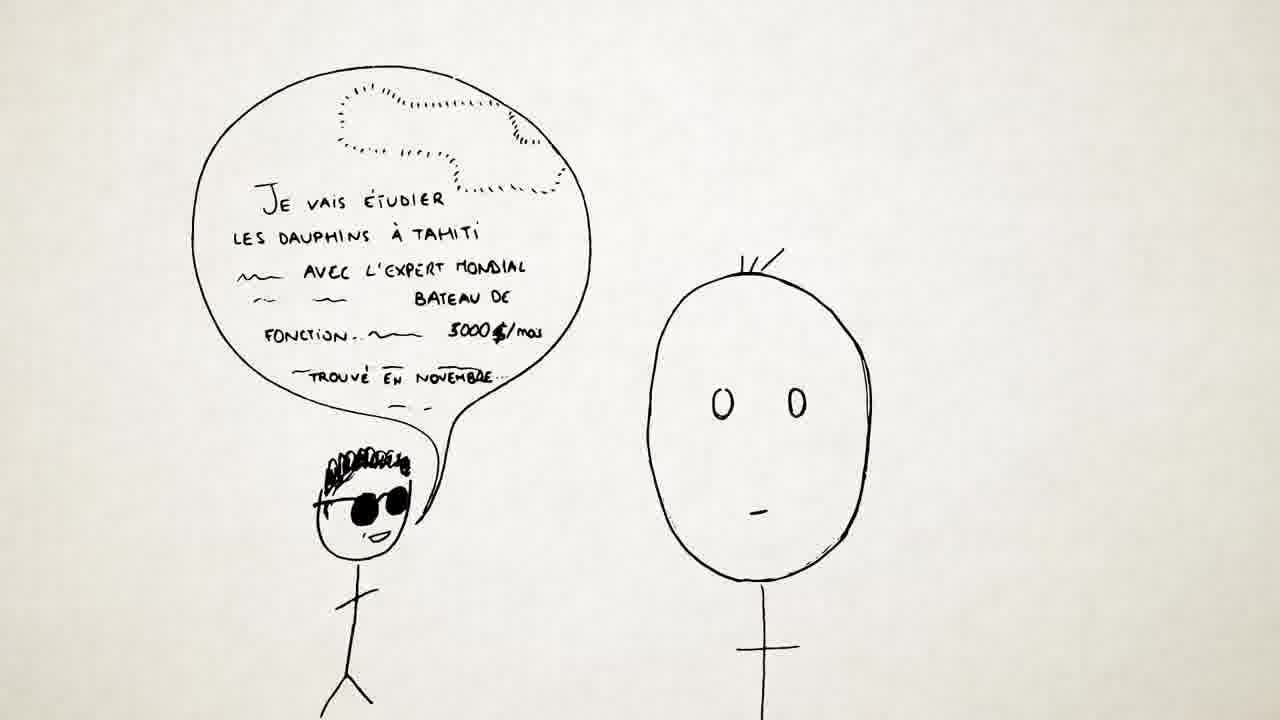 JE VAIS ÉTUDIER
LES DAUPHINS À TAHITI
AVEC L'EXPERT MONDIAL
BATEAU DE
FONCTION... 5000$/mois
TROUVÉ EN NOVEMBRE...